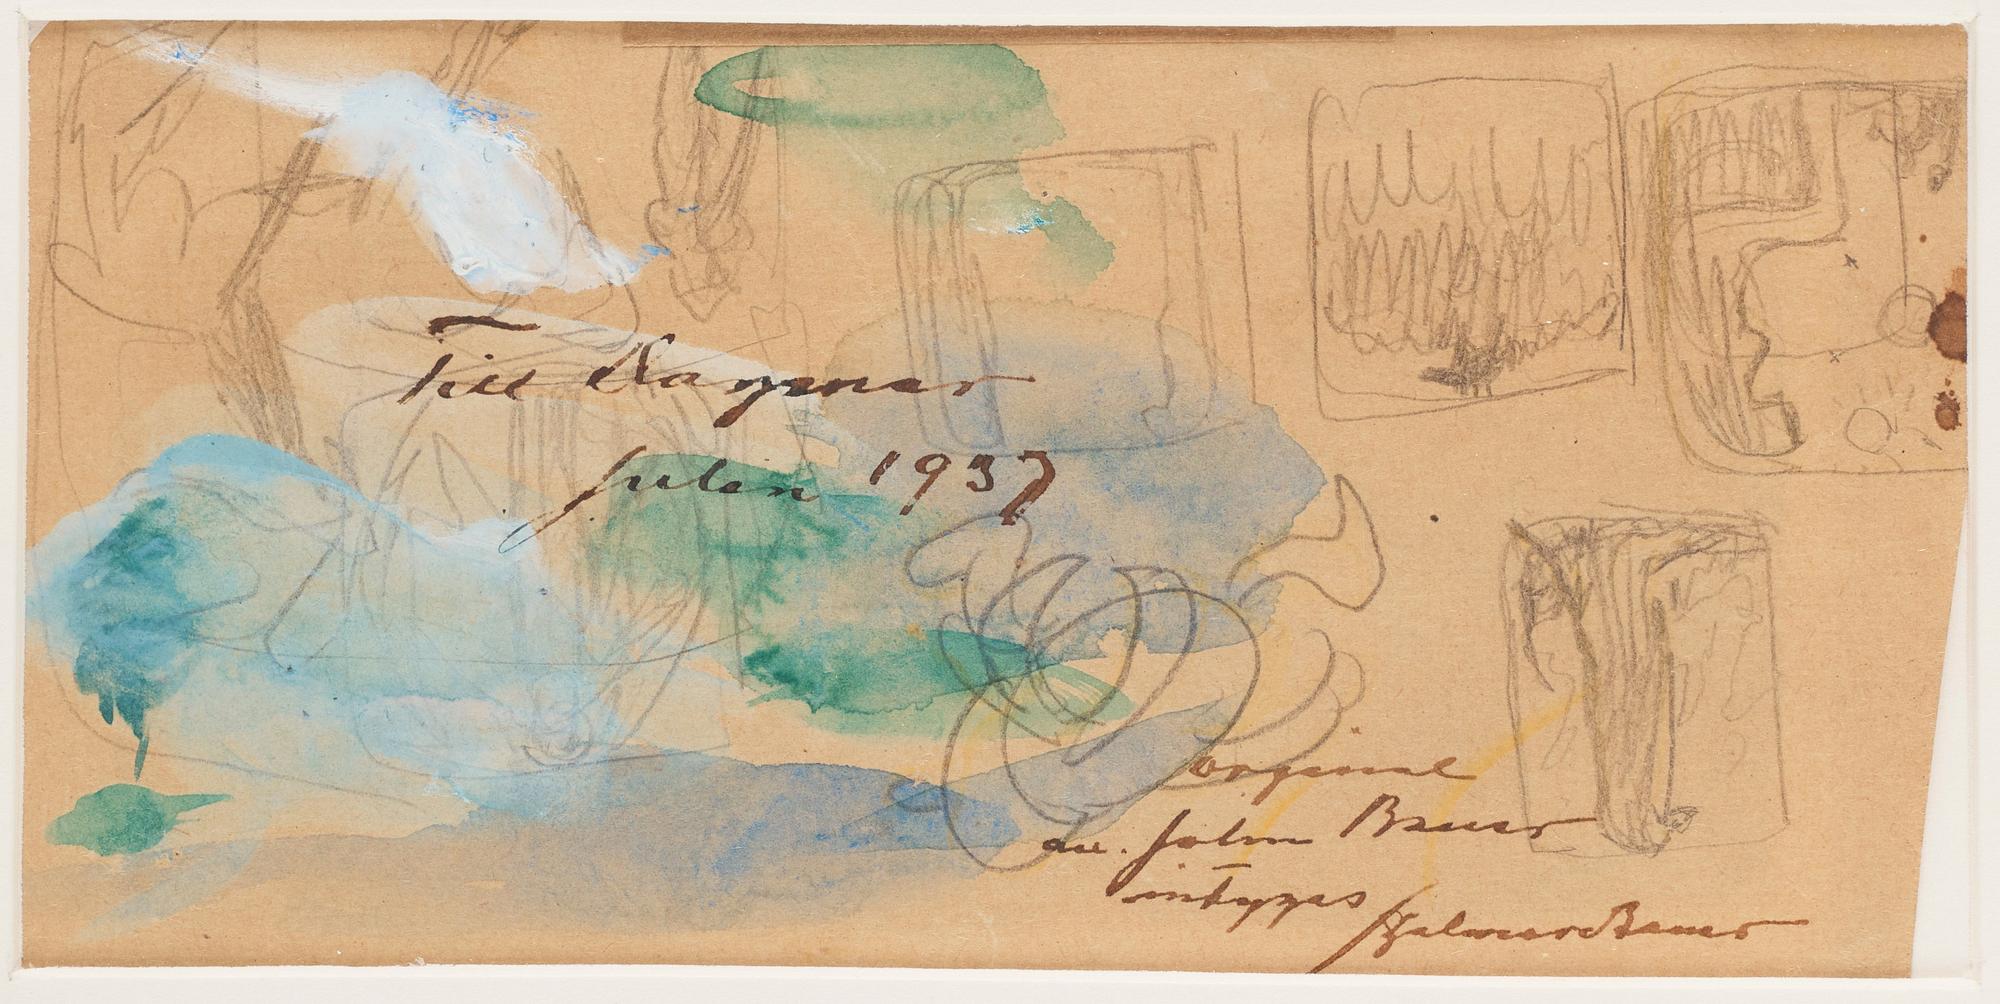 Till Dagmar
Julen 1937
original
av. John Bauer
intygas
Hjalmar Bauer